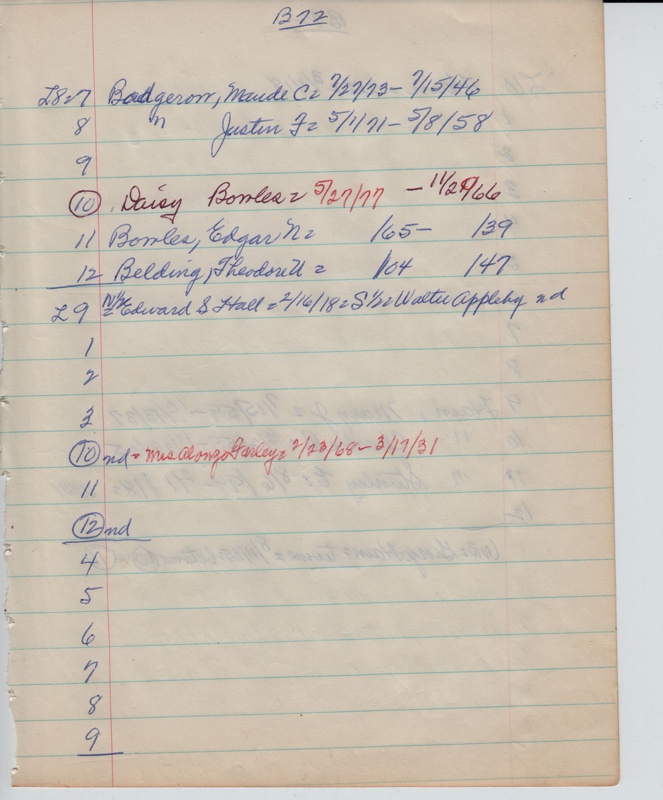 B72
L8=7 Badgerow, Maude C= 7/27/73- 7/15/46
8 " Justin F= 5/1/71- 5/8/58
9
10 Daisy Bowles= 5/27/77 - 11/29/66
11 Bowles, Edgar N= /65- /39
12 Belding, Theodore U = /04 /47
L9 N½= Edward S Hall=2/16/18=S½=Walter Appleby nd
1
2
3
10 nd= Mrs Alonzo Farley= 2/23/68-3/17/31
11
12 nd
4
5
6
7
8
9